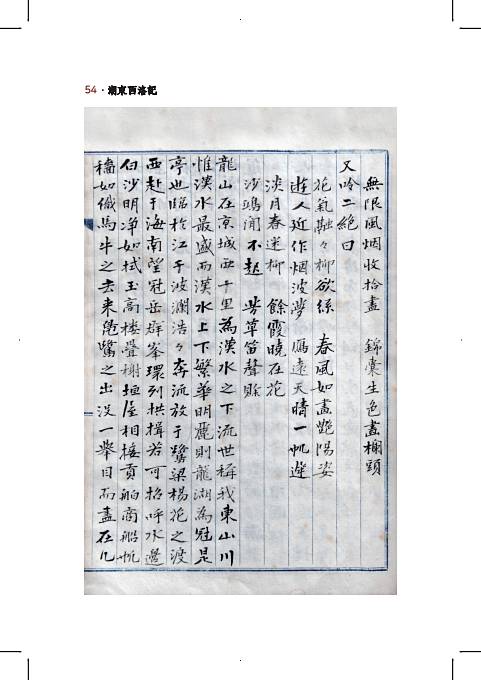 54 · 湖東西洛記
無限風烟收拾盡 錦囊生色畫欄頭
又吟二絶曰
花氣融々柳欲絲 春風如畫艶陽姿
遊人近作烟波夢 鴈遠天晴一帆遲
淡月春迷柳 餘霞曉在花
沙鷗聞不起 芳草笛聲賖
龍山在京城西十里為漢水之下流世稱我東山川
惟漢水最盛而漢水上下繁華明麗則龍湖為冠是
亭也臨於江干波瀾浩々奔流放于鷺梁楊花之渡
西赴于海南望冠岳群峯環列拱揖若可招呼水邊
白沙明净如拭玉高樓疊榭垣屋相接貢舶商船帆
檣如織馬牛之去來鳧鷺之出沒一舉目而盡在几